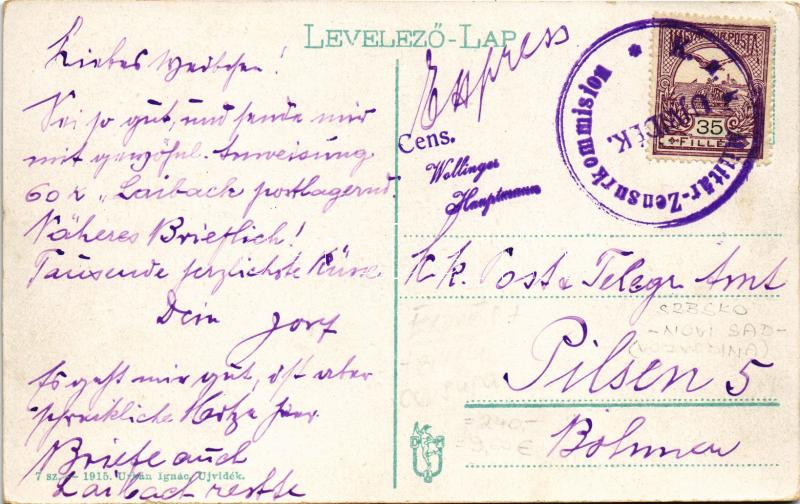 LEVELEZŐ-LAP
Liebes Weibchen!
Sei so gut, und sende mir
mit gewöhnl. Anweisung
60 K „Laibach postlagernd"
Näheres Brieflich!
Tausende herzlichste Küsse
Dein Josef
Es geht mir gut, ist aber
schreckliche Hitze hier.
Briefe auch
Laibach restte
7 sz. — 1915. Urbán Ignác, Ujvidék.
Express
Cens.
Wollinger
Hauptmann
K. u. K. Militär-Zensurkommission
UJVIDÉK.
MAGYAR KIR. POSTA
35
FILLÉR
K. k. Post & Telegr. Amt
Pilsen 5
Böhmen
SRBSKO
- NOVI SAD -
(VOJVODINA)